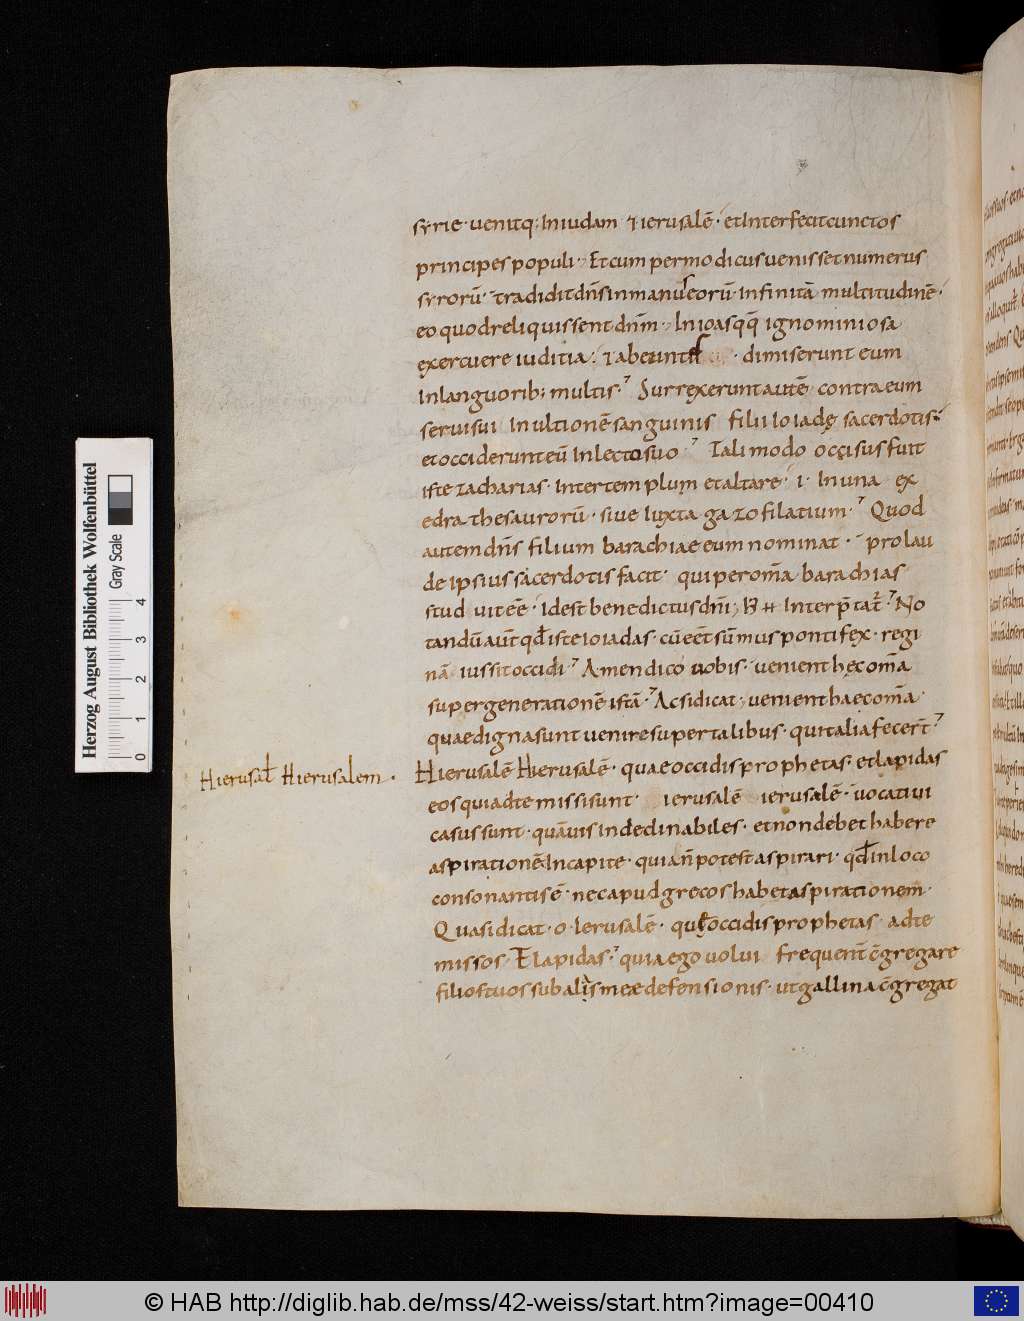 syrie · uenitq; In iudam & ierusalē · et Interfecit cunctos
principes populi · Et cum permodicus uenisset numerus
syrorū · tradidit dn̄s in manus eorū · Infinitā multitudinē ·
eo quod reliquissent dn̄m · In ioas qq̄ ignominiosa
exercuere iuditia · & abeuntes · dimiserunt eum
In languorib; multis · Surrexerunt autē contra eum
serui sui In ultionē sanguinis filii Ioiadę sacerdotis ·
et occiderunt eū In lecto suo · Tali modo occisus fuit
iste zacharias · Inter templum et altare · i · In una ex
edra thesaurorū · siue Iuxta gazofilatium · Quod
autem dn̄s filium barachiae eum nominat · pro lau
de ipsius sacerdotis facit · qui per om̄a barachias
studuit eē · Id est benedictus dn̄i · Interp̄tat̄ · No
tandū aut̄ qđ iste Ioiadas · cū eēt sūmus pontifex · regi
nā iussit occidi · Amen dico uobis · uenient hęc om̄a
super generationē istā · Ac si dicat · uenient haec om̄a
quae digna sunt uenire super talibus · qui talia fecer̄t
Hierusal̄ Hierusalem ·
Hierusalē Hierusalē · quae occidis prophetas · et lapidas
eos qui ad te missi sunt · ierusalē ierusalē · uocatiui
casus sunt · quāuis Indeclinabiles · et non debet habere
aspirationē In capite · quia n̄ potest aspirari · qđ In loco
consonantis ē · nec apud grecos habet aspirationem ·
Quasi dicat · o · Ierusalē · quę occidis prophetas ad te
missos · Et lapidas · quia ego uolui frequent̄ c̄gregare
filios tuos sub alis meae defensionis · ut gallina c̄gregat
Herzog August Bibliothek Wolfenbüttel
Gray Scale
0 1 2 3 4
© HAB http://diglib.hab.de/mss/42-weiss/start.htm?image=00410